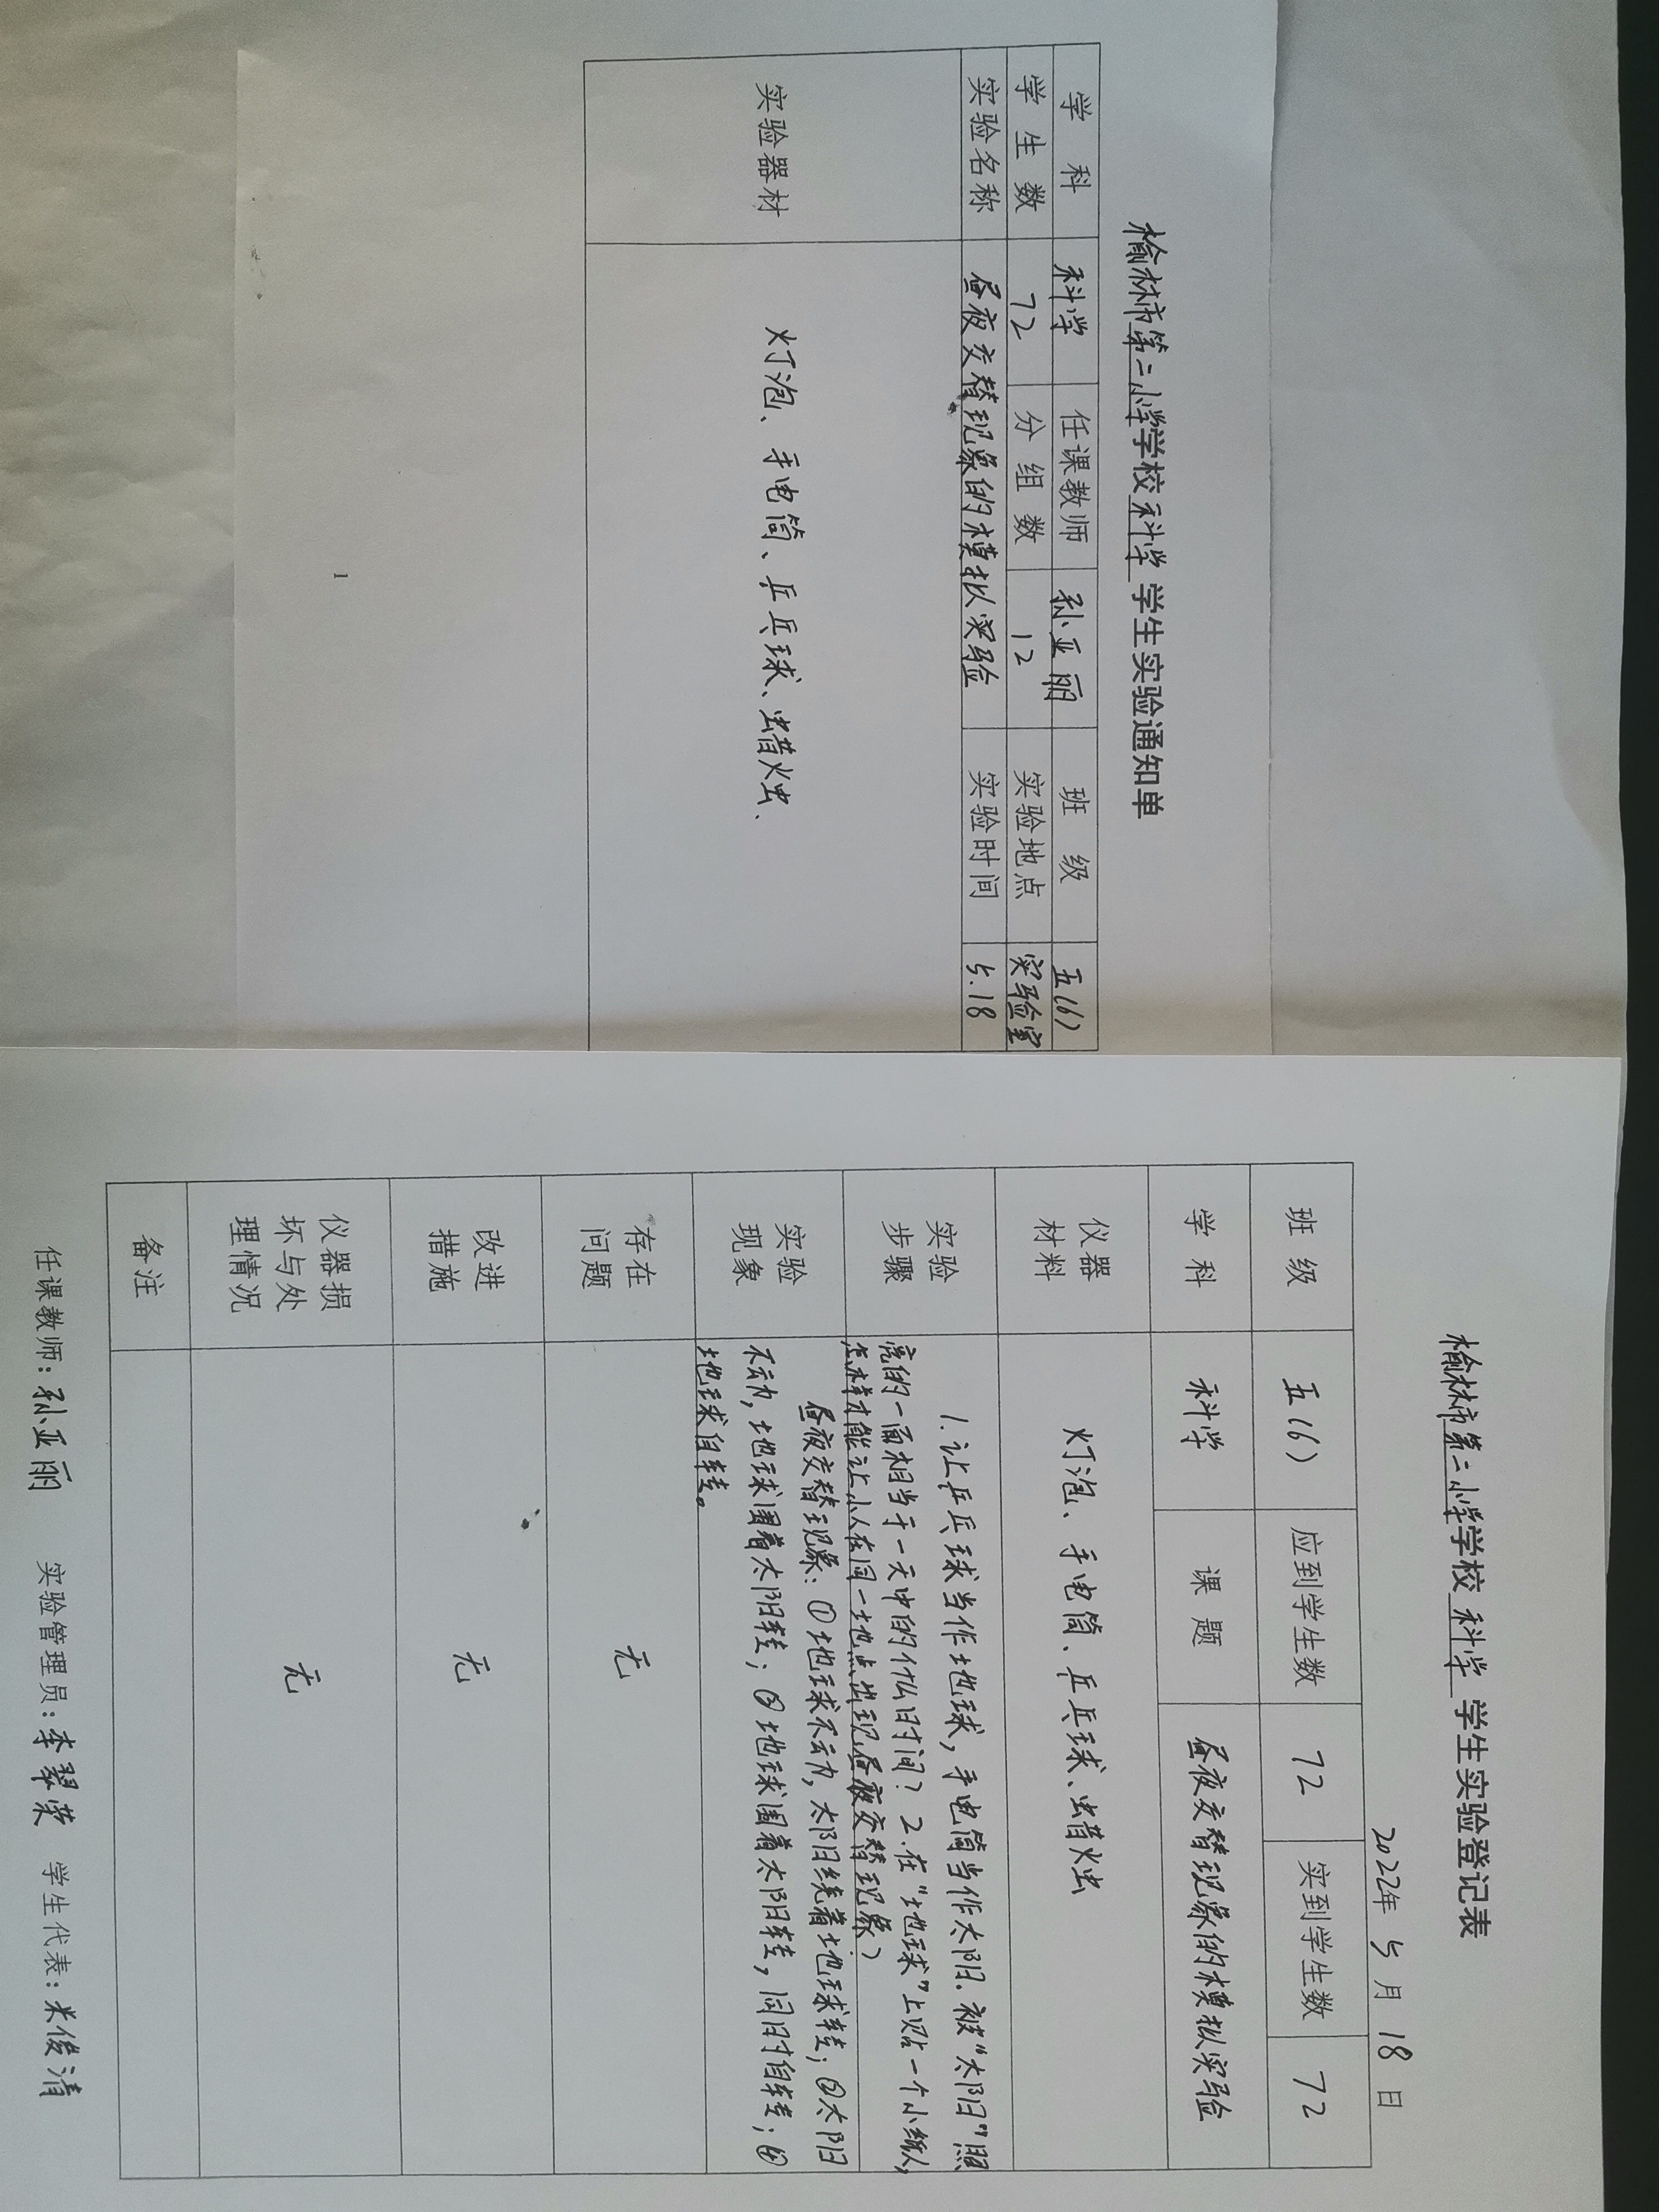 榆林市第二小学学校 科学 学生实验通知单
学 科 科学 任课教师 孙亚丽 班 级 五(6)
学 生 数 72 分 组 数 12 实验地点 实验室
实验名称 昼夜交替现象的模拟实验 实验时间 5.18
实验器材 灯泡、手电筒、乒乓球、蜡烛、
1
榆林市第二小学学校 科学 学生实验登记表
2022年 5 月 18 日
班 级 五(6) 应到学生数 72 实到学生数 72
学 科 科学 课 题 昼夜交替现象的模拟实验
仪器
材料
灯泡、手电筒、乒乓球、蜡烛
实验
步骤
1.让乒乓球当作地球,手电筒当作太阳.被"太阳"照
亮的一面相当于一天中的什么时间?2.在"地球"上贴一个小纸人,
怎样才能让小人在同一地点出现昼夜交替现象?
实验
现象
昼夜交替现象:①地球不动,太阳绕着地球转;②太阳
不动,地球围着太阳转;③地球围着太阳转,同时自转;④
地球自转。
存在
问题
无
改进
措施
无
仪器损
坏与处
理情况
无
备注
任课教师:孙亚丽 实验管理员:李翠荣 学生代表:米俊清